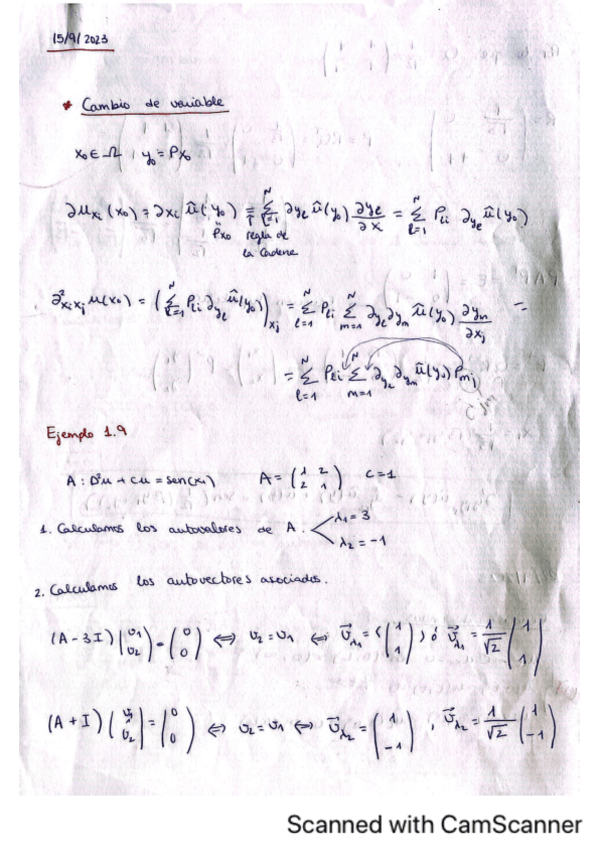 15/9/2023
* Cambio de variable
x₀ ∈ Ω , y₀ = Px₀
∂u_{xᵢ}(x₀) = ∂xᵢ û(y₀) = Σ_{l=1}^{N} ∂y_l û(y₀) ∂y_l/∂x = Σ_{l=1}^{N} P_{li} ∂y_l û(y₀)
Px₀ regla de
la Cadena
∂²_{xᵢxⱼ} u(x₀) = (Σ_{l=1}^{N} P_{li} ∂y_l û(y₀))_{xⱼ} = Σ_{l=1}^{N} P_{li} Σ_{m=1}^{N} ∂y_l ∂y_m û(y₀) ∂y_m/∂xⱼ =
= Σ_{l=1}^{N} P_{li} Σ_{m=1}^{N} ∂y_l ∂y_m û(y₀) P_{mj}
Ejemplo 1.9
A : D²u + cu = sen(x₁) A = (1 2; 2 1) c = 1
1. Calculamos los autovalores de A. λ₁ = 3
λ₂ = -1
2. Calculamos los autovectores asociados.
(A - 3I)(v₁; v₂) = (0; 0) ⟺ v₂ = v₁ ⟺ v⃗_{λ₁} = <(1; 1)> ó v⃗_{λ₁} = 1/√2 (1; 1)
(A + I)(v₁; v₂) = (0; 0) ⟺ v₂ = v₁ ⟺ v⃗_{λ₂} = (1; -1) , v⃗_{λ₂} = 1/√2 (1; -1)
Scanned with CamScanner